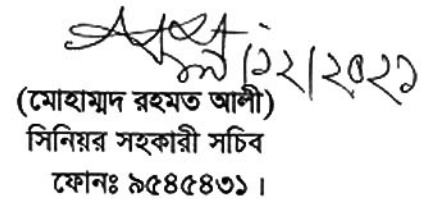 ১২/২০২১
(মোহাম্মদ রহমত আলী)
সিনিয়র সহকারী সচিব
ফোনঃ ৯৫৪৫৪৩১ ।